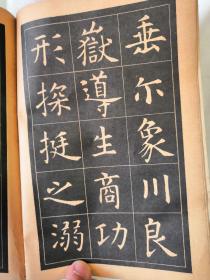 垂尓象川良
嶽導生商功
形探挺之溺